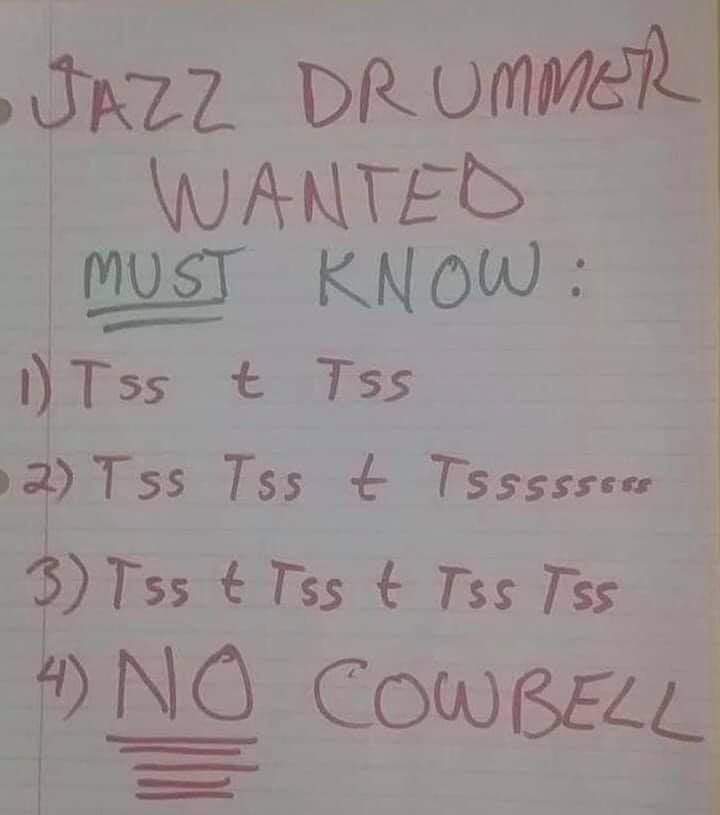 JAZZ DRUMMER
WANTED
MUST KNOW:
1) Tss t Tss
2) Tss Tss t Tsssssssss
3) Tss t Tss t Tss Tss
4) NO COWBELL